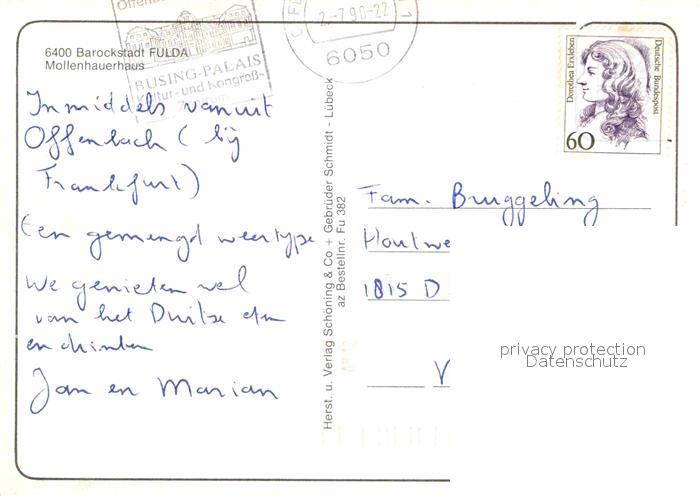 Offenbach
BÜSING-PALAIS
Kultur- und Kongreß-
-2.-7.90-22
6050
6400 Barockstadt FULDA
Mollenhauerhaus
Dorothea Erxleben
Deutsche Bundespost
60
Inmiddels vanuit
Offenbach (bij
Frankfurt)
Een gemengd weertype
We genieten wel
van het Duitse eten
en drinken
Jan en Marian
Herst. u. Verlag Schöning & Co + Gebrüder Schmidt - Lübeck
az Bestellnr. Fu 382
Fam. Bruggeling
Houtwe
1815 D
V
privacy protection
Datenschutz